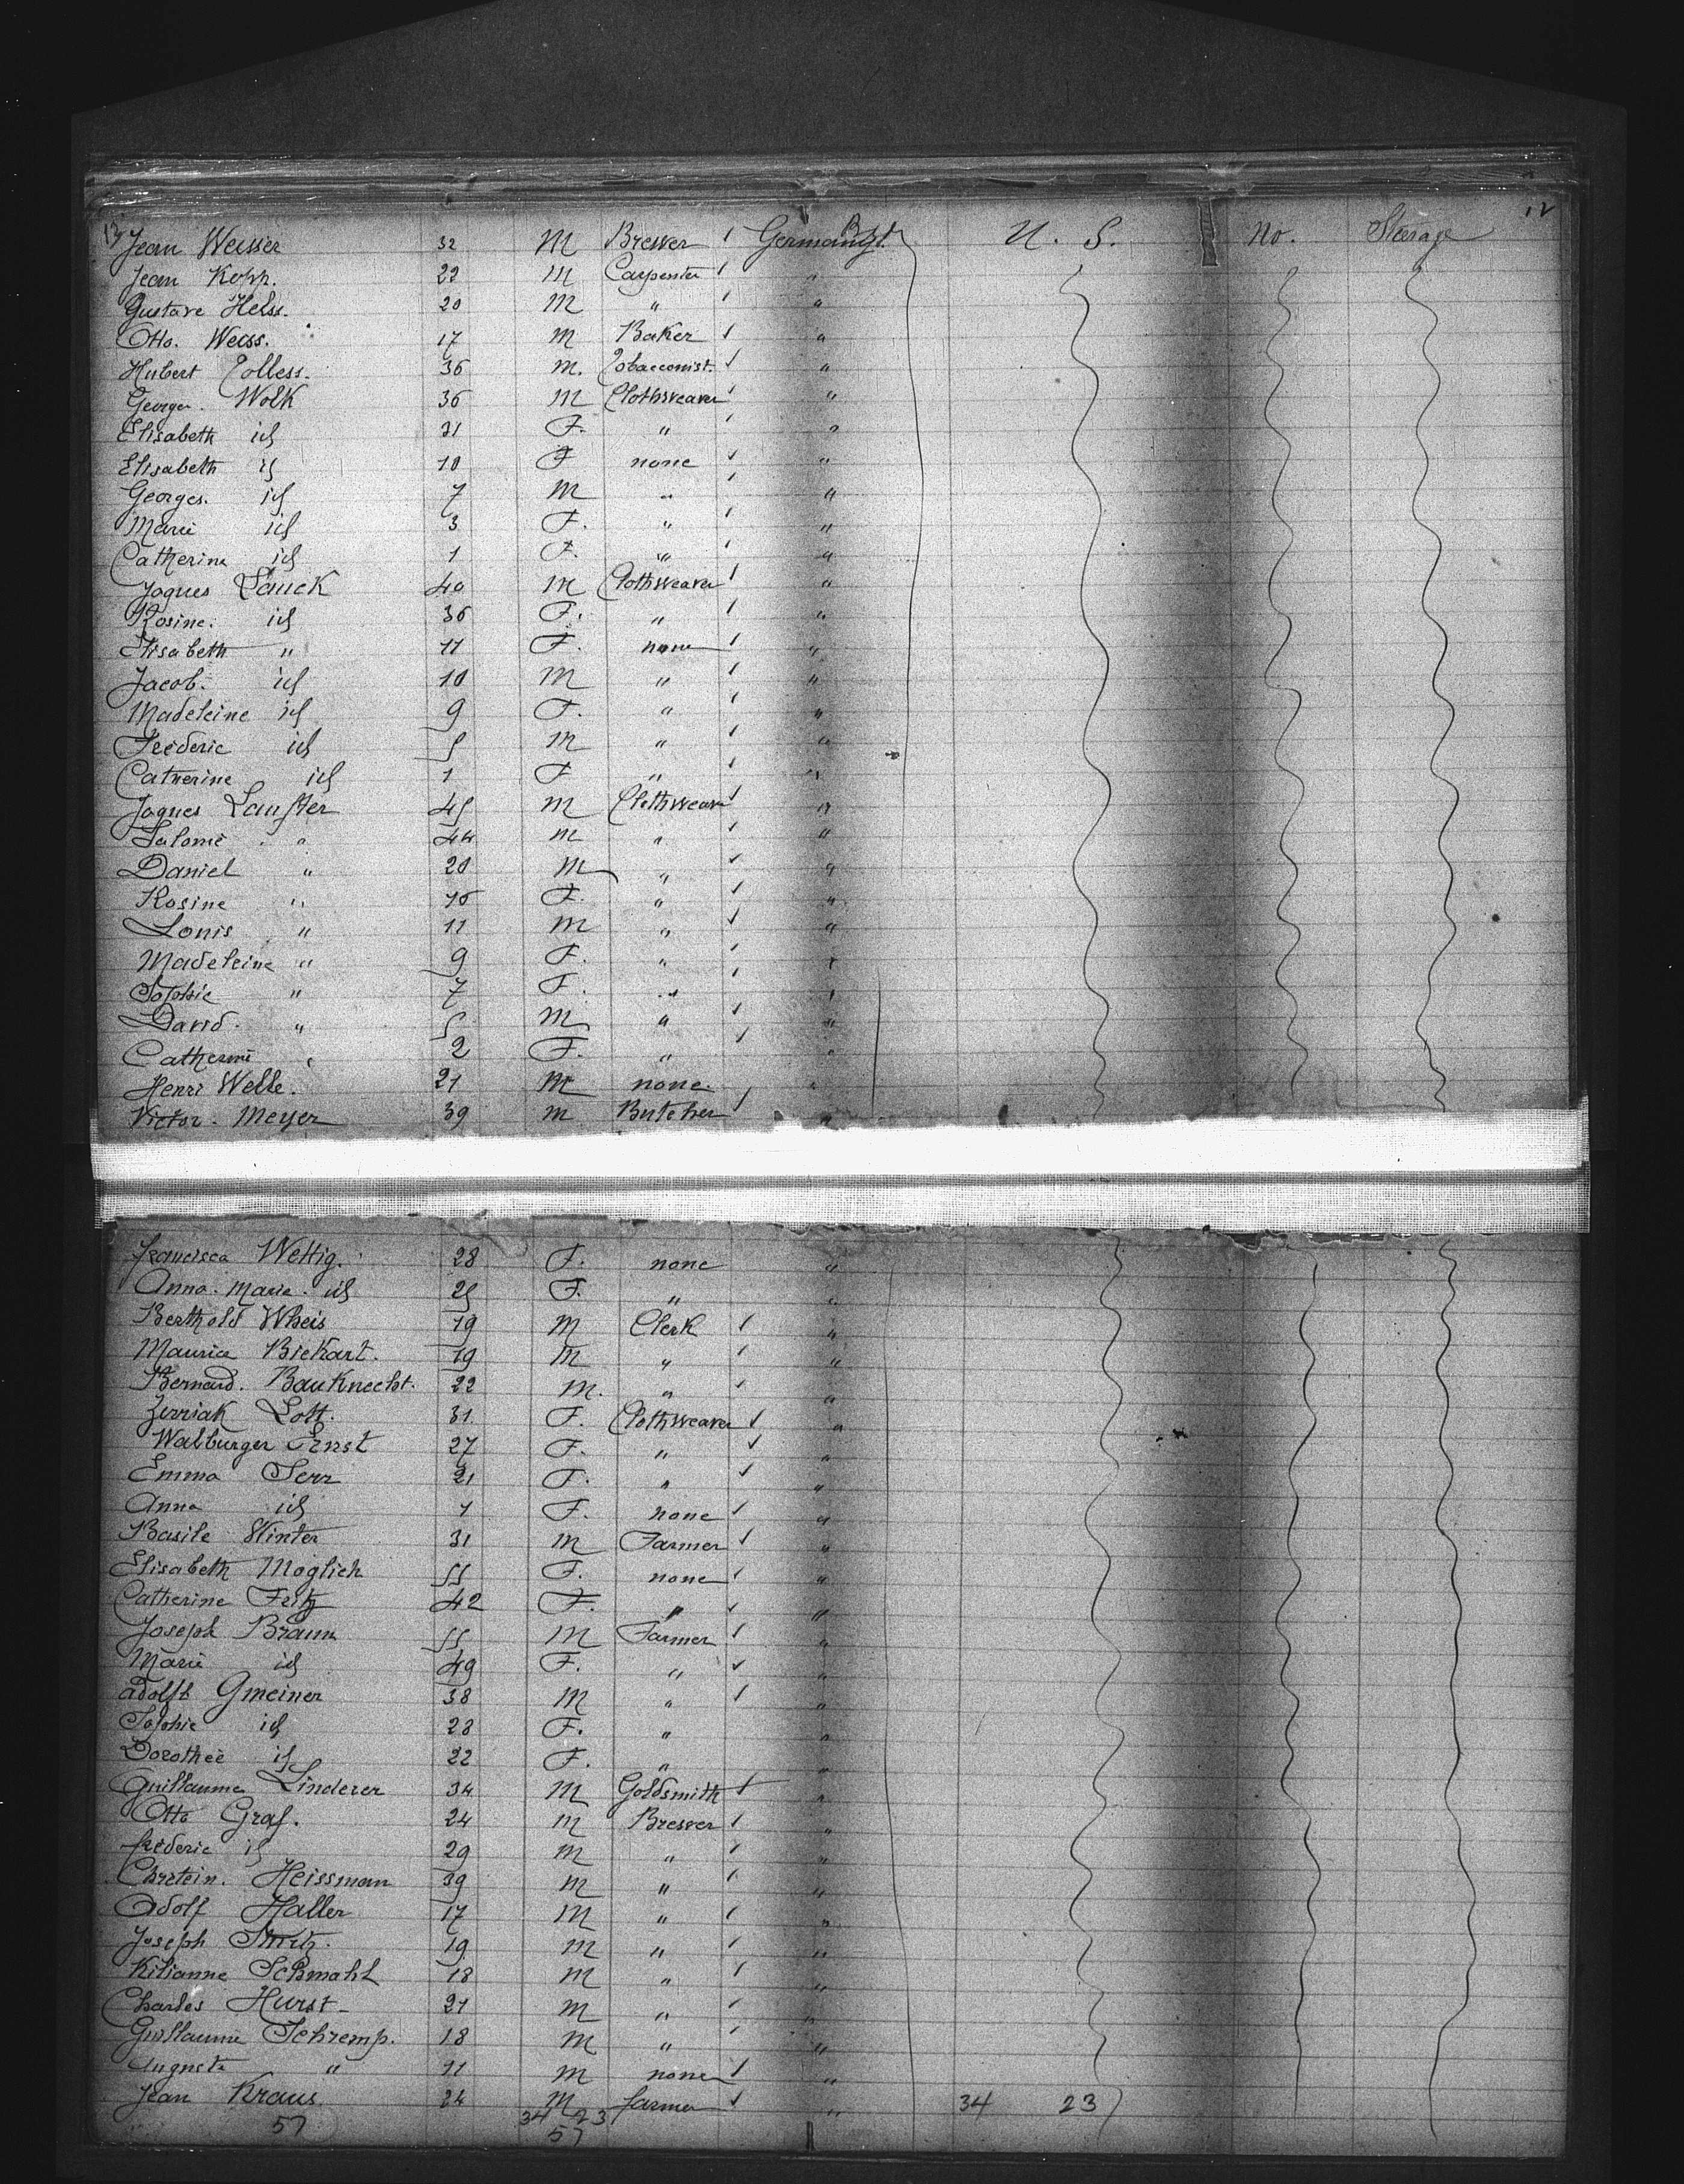 12
Jean Weisser 32 M Brewer Germany U. S. No. Steerage
Jean Kopp. 22 M Carpenter "
Gustave Heiss. 20 M " "
Otto. Weiss. 17 M Baker "
Hubert Tolless. 36 M. Tobacconist. "
Georges. Wolk 36 M Clothweaver "
Elisabeth id 31 F. " "
Elisabeth id 10 F none "
Georges. id 7 M " "
Marie id 3 F. " "
Catherine id 1 F. " "
Jaques Lauck 40 M Clothweaver "
Rosine. id 36 F. " "
Elisabeth " 11 F. none "
Jacob. id 10 M " "
Madeleine id 9 F. " "
Fréderic id 5 M " "
Catherine id 1 F " "
Jaques Lauffer 45 M Clothweaver "
Salomé " 44 M " "
Daniel " 20 M " "
Rosine " 16 F. " "
Louis " 11 M " "
Madeleine " 9 F. " "
Sophie " 7 F. " "
David. " 5 M " "
Catherine " 2 F. " "
Henri Welle. 21 M none. "
Victor. Meyer 39 M Butcher "
Francisca Wettig. 28 F. none "
Anna. Marie. id 25 F. " "
Berthold Wheis 19 M Clerk "
Maurice Bickart. 19 M " "
Bernard. Bauknecht. 22 M. " "
Lott. 31 F. Clothweaver "
Walburger Ernst 27 F. " "
Emma Serr 21 F. " "
Anna id 1 F. none "
Basile Winter 31 M Farmer "
Elisabeth Moglich 55 F. none "
Catherine Fritz 42 F. " "
Joseph Braun 55 M Farmer "
Marie id 49 F. " "
Adolft Gmeiner 38 M " "
Sophie id 28 F. " "
Dorotheé id 22 F. " "
Guillaume Linderer 34 M Goldsmith "
Otto Graf. 24 M Brewer "
fréderic id 29 M " "
Chretein. Heissman 39 M " "
Adolf Haller 17 M " "
Joseph 19 M " "
Kilianne Schmahl 18 M " "
Charles Hurst 21 M " "
Guillaume Schremp. 18 M " "
Auguste " 11 M none "
Jean Kraus. 24 M farmer " 34 23
57 34 23
57